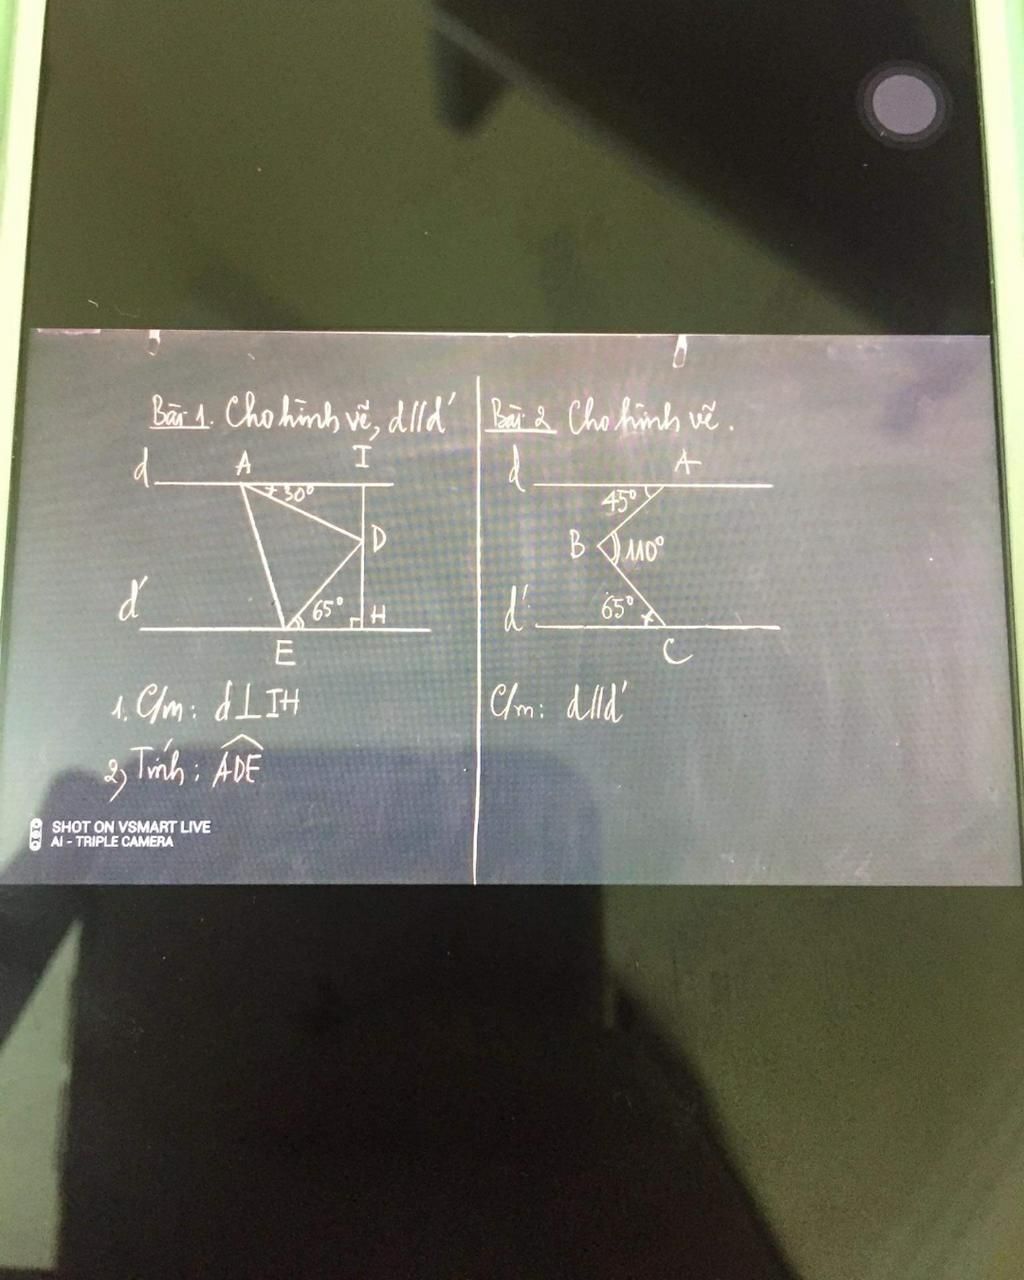 Bài 1. Cho hình vẽ, d//d'
d A I
30°
D
d' 65° H
E
1. C/m: d⊥IH
2, Tính: ADE
Bài 2 Cho hình vẽ.
d A
45°
B 110°
d' 65°
C
C/m: d//d'
SHOT ON VSMART LIVE
AI - TRIPLE CAMERA